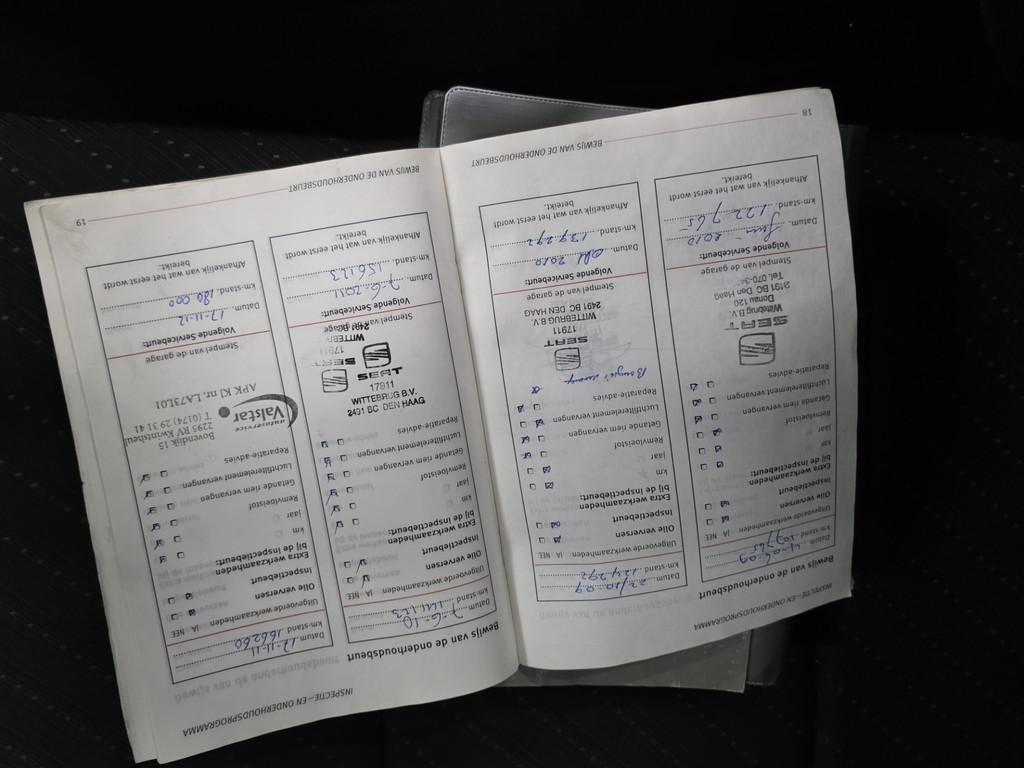 INSPECTIE-EN ONDERHOUDSPROGRAMMA
Bewijs van de onderhoudsbeurt
Datum 4-06-09
km-stand 107765
Uitgevoerde werkzaamheden JA NEE
Olie verversen
Inspectiebeurt
Extra werkzaamheden
bij de inspectiebeurt:
km
jaar
Remvloeistof
Getande riem vervangen
Luchtfilterelement vervangen
Reparatie-advies
SEAT
Wittebrug B.V.
Donau 120
2491 BC Den Haag
Tel. 070-34
Stempel van de garage
Volgende Servicebeurt:
Datum. Juni - 2010
km-stand. 122765
Afhankelijk van wat het eerst wordt
bereikt.
Datum 23/10.09
km-stand 124292
Uitgevoerde werkzaamheden: JA NEE
Olie verversen
Inspectiebeurt
Extra werkzaamheden
bij de inspectiebeurt:
km
jaar
Remvloeistof
Getande riem vervangen
Luchtfilterelement vervangen
Reparatie-advies
SEAT
17911
WITTEBRUG B.V.
2491 BC DEN HAAG
Stempel van de garage
Volgende Servicebeurt:
Datum. Okt 2010
km-stand. 139292
Afhankelijk van wat het eerst wordt
bereikt.
BEWIJS VAN DE ONDERHOUDSBEURT
18
INSPECTIE-EN ONDERHOUDSPROGRAMMA
Bewijs van de onderhoudsbeurt
Datum 7-6-10
km-stand 141123
Uitgevoerde werkzaamheden JA NEE
Olie verversen
Inspectiebeurt
Extra werkzaamheden
bij de inspectiebeurt:
km
jaar
Remvloeistof
Getande riem vervangen
Luchtfilterelement vervangen
Reparatie-advies
2491 BC DEN HAAG
WITTEBRUG B.V.
17911
SEAT
SEAT
17911
WITTEBR
2491 BC
Stempel van de garage
Volgende Servicebeurt:
Datum. 7-6-2011
km-stand. 156123
Afhankelijk van wat het eerst wordt
bereikt.
Datum 17-11-11
km-stand 166260
Uitgevoerde werkzaamheden JA NEE
Olie verversen
Inspectiebeurt
Extra werkzaamheden
bij de inspectiebeurt:
km
jaar
Remvloeistof
Getande riem vervangen
Luchtfilterelement vervangen
Reparatie-advies
autoservice
Valstar
Bovendijk 15
2295 RV Kwintsheul
T (0174) 29 31 41
APK KI nr. LA73L01
Stempel van de garage
Volgende Servicebeurt:
Datum 17-11-12
km-stand. 180 000
Afhankelijk van wat het eerst wordt
bereikt.
BEWIJS VAN DE ONDERHOUDSBEURT
19